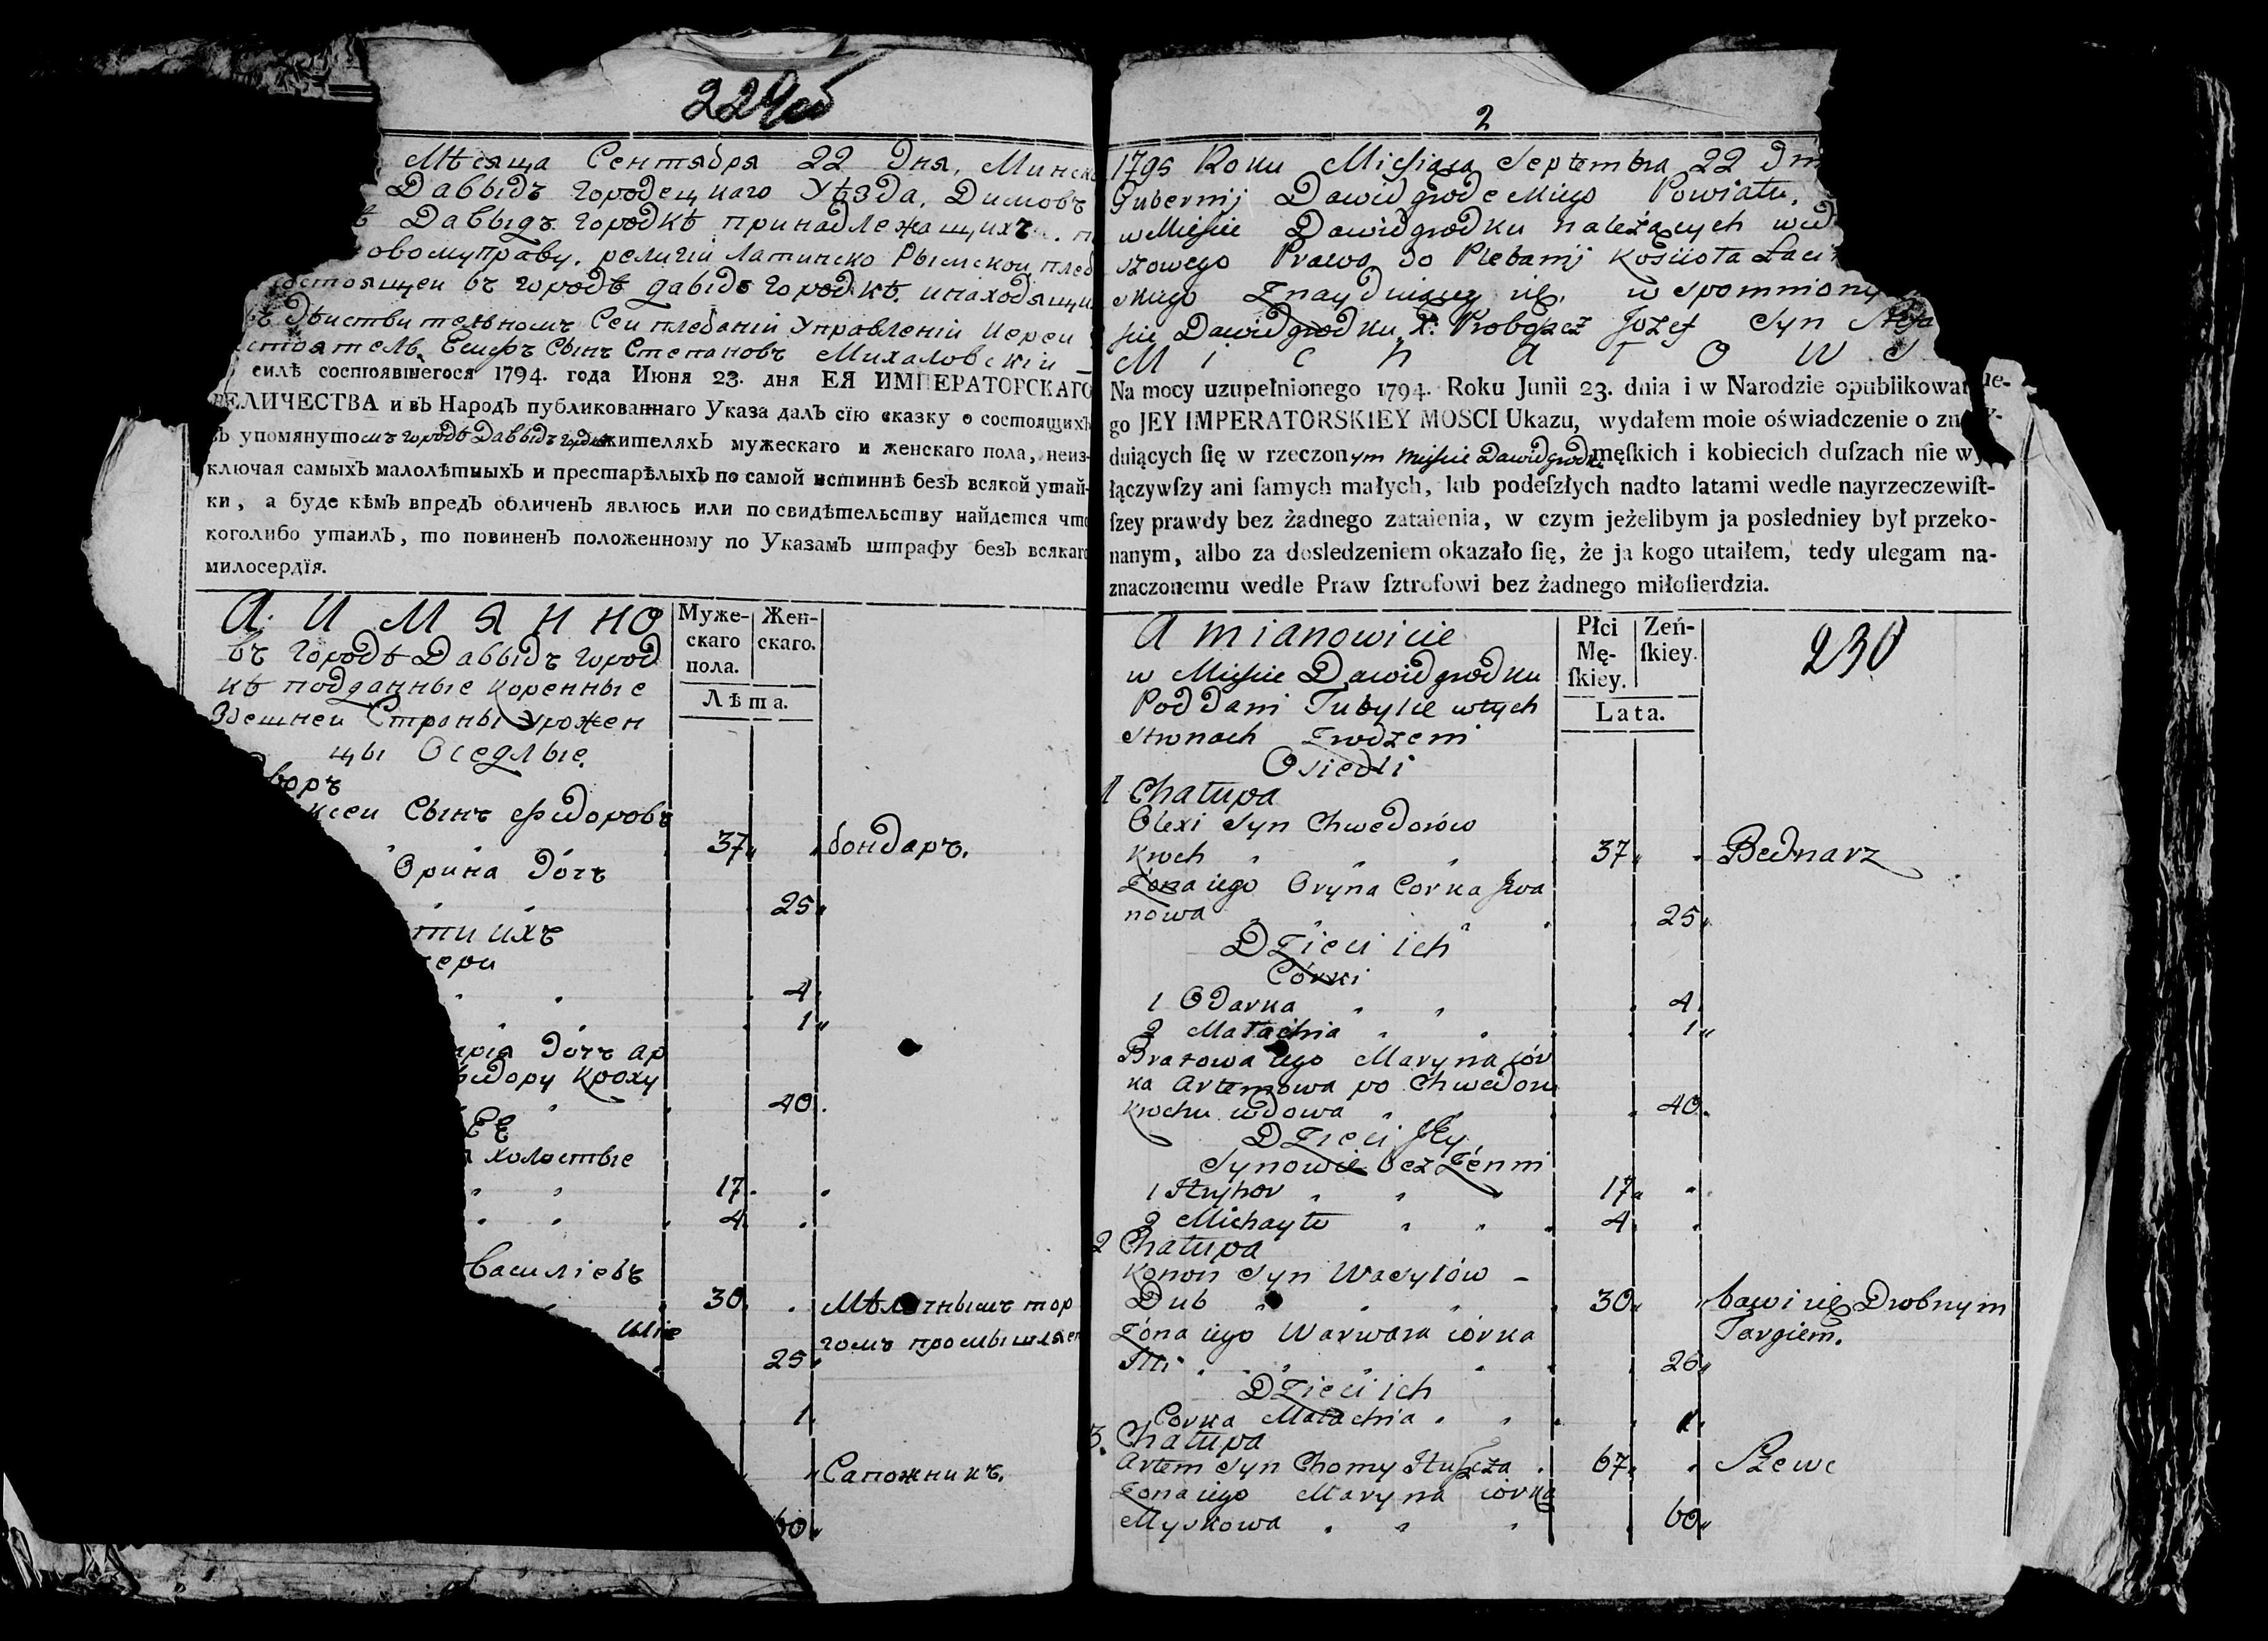 229об
Мѣсяца Сентября 22 Дня, Минско
Давыдъ городецкаго Уѣзда, Димовъ
Давыдъ городкѣ принадлежащихъ
овому праву. религіи Латинско Рымской плеб
состоящеи въ городѣ давыдъ городкѣ. инаходящи
въ дѣиствительномъ Сеи плебаніи Управленіи Иереи
стоятель Есифъ Сынъ Степановъ Михаловскіи
силѣ состоявшегося 1794. года Июня 23. дня ЕЯ ИМПЕРАТОРСКАГО
ВЕЛИЧЕСТВА и въ Народъ публикованнаго Указа далъ сїю сказку о состоящихъ
въ упомянутомъ городѣ Давыдъ городкѣ жителяхъ мужескаго и женскаго пола, неиз-
ключая самыхъ малолѣтныхъ и престарѣлыхъ по самой истиннѣ безъ всякой утай-
ки, а буде кѣмъ впредь обличенъ явлюсь или по свидѣтельству найдется что
коголибо утаилъ, то повиненъ положенному по Указамъ штрафу безъ всякаго
милосердїя.
А. И М Я Н Н О
въ городѣ Давыдъ город
кѣ подданные коренные
Здешнеи Страны Урожен
цы Оседлые.
Муже-
скаго
пола.
Жен-
скаго.
Лѣта.
воръ
ксеи Сынъ Фидоровъ
37 бондаръ.
Орина дочъ
25
ти ихъ
чери
4
1
арія дочъ ар
Фидору Кроху
40
Еѣ
холостые
17
4
Василіевъ
30 Мѣлочнымъ тор
гомъ промышляет
Иліе
25
1
Сапожникъ.
60
2
1795 Roku Miesiąca Septembra 22 Dnia
Gubernij Dawidgrodeckiego Powiatu,
w Mieście Dawidgrodku należących wed
szowego Prawa do Plebanij Kościoła Łaciń
skiego Znayduiącey się, w spomniony
ście Dawidgrodku, X. Proboszcz Jozef Syn Stefa
M i c h a ł o w s
Na mocy uzupełnionego 1794. Roku Junii 23. dnia i w Narodzie opublikowane-
go JEY IMPERATORSKIEY MOSCI Ukazu, wydałem moie oświadczenie o znay-
duiących ſię w rzeczonym Mieście Dawidgrodku męſkich i kobiecich duſzach nie wy
łączywſzy ani ſamych małych, lub podeſzłych nadto latami wedle nayrzeczewiſt-
ſzey prawdy bez żadnego zataienia, w czym jeżelibym ja posledniey był przeko-
nanym, albo za dosledzeniem okazało ſię, że ja kogo utaiłem, tedy ulegam na-
znaczonemu wedle Praw ſztrofowi bez żadnego miłoſierdzia.
A mianowicie
w Mieście Dawidgrodku
Poddani Tubylce wtych
stronach Zrodzeni
Osiedli
Płci
Mę-
ſkiey.
Zeń-
ſkiey.
Lata.
230
1 Chałupa
Olexi Syn Chwedorów
Kroch 37 Bednarz
Żona iego Oryna Corka Iwa
nowa 25
Dzieci ich
Córki
1 Odarka 4
2 Małachia 1
Bratowa iego Maryna cór
ka Artemowa po Chwedoru
Krochu wdowa 40
Dzieci Jey
Synowie bez Żenni
1 Hryhor 17
2 Michayło 4
2 Chałupa
Konon Syn Wasylów -
Dub 30 bawi się Drobnym
Targiem.
Żona iego Warwara corka
Illi 26
Dzieci ich
Corka Małachia 1
3. Chałupa
Artem Syn Chomy 67 Szewc
Żona iego Maryna corka
Myskowa 60